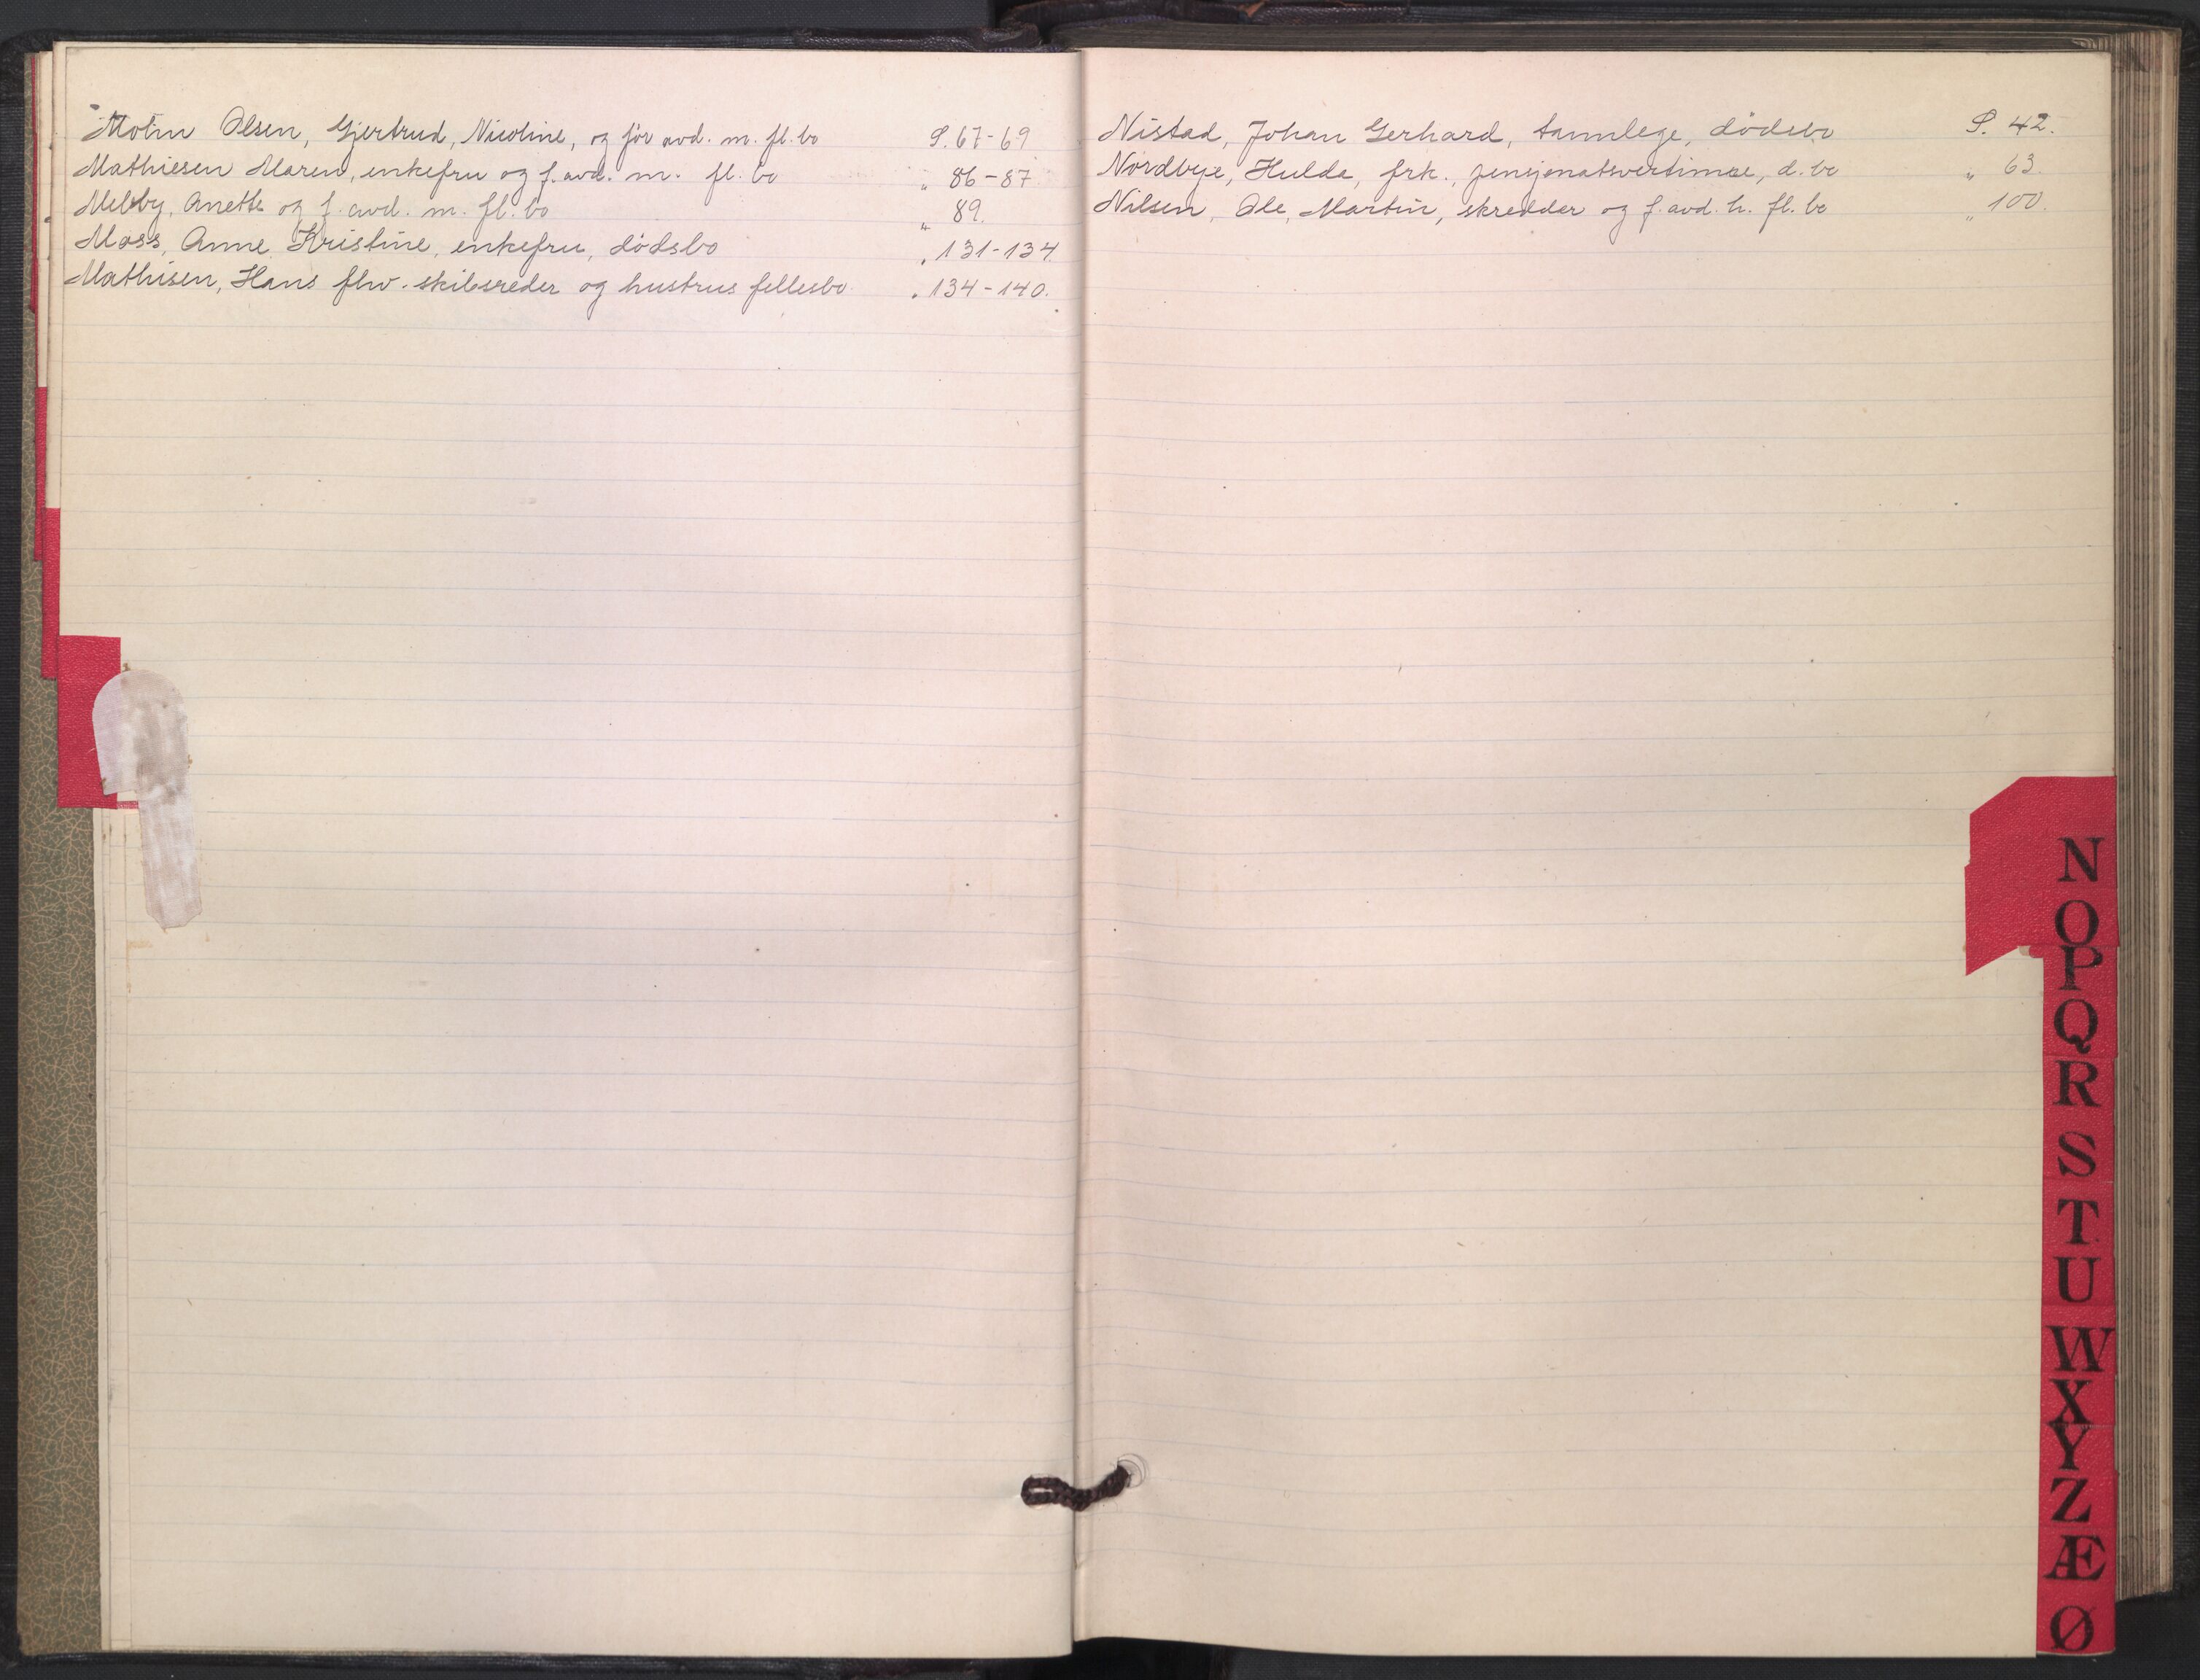 Molin Olsen, Gjertrud, Nicoline, og før avd. m. fl. bo S. 67-69
Mathiesen Maren, enkefru og f. avd. m. fl. bo " 86-87
Melby, Anette og f. avd. m. fl. bo " 89.
Moss, Anne Kristine, enkefru, dødsbo " 131-134
Mathisen, Hans fhv. skibsreder og hustrus fellesbo " 134-140.
Nistad, Johan Gerhard, tannlege, dødsbo S. 42.
Nordbye, Hulda, frk., pensjonatsvertinne, d. bo " 63.
Nilsen, Ole, Martin, skredder og f. avd. h. fl. bo " 100.
N
O
P
Q
R
S
T
U
W
X
Y
Z
Æ
Ø